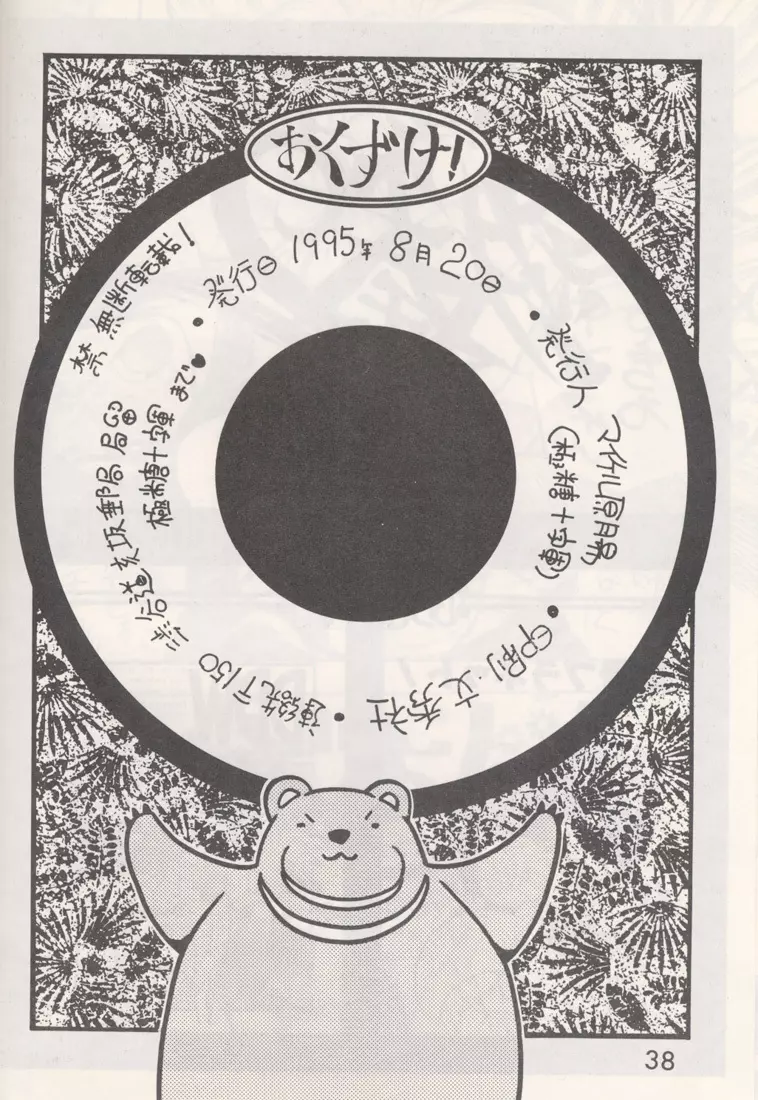 おくずけ!
・発行日 1995年 8月 20日
・発行人 マイケル原月景
(極糖十字軍)
・印刷・文秀社
・連絡先 〒150
渋谷道玄坂郵局局
極糖十字軍 まで
禁 無断転載!
38